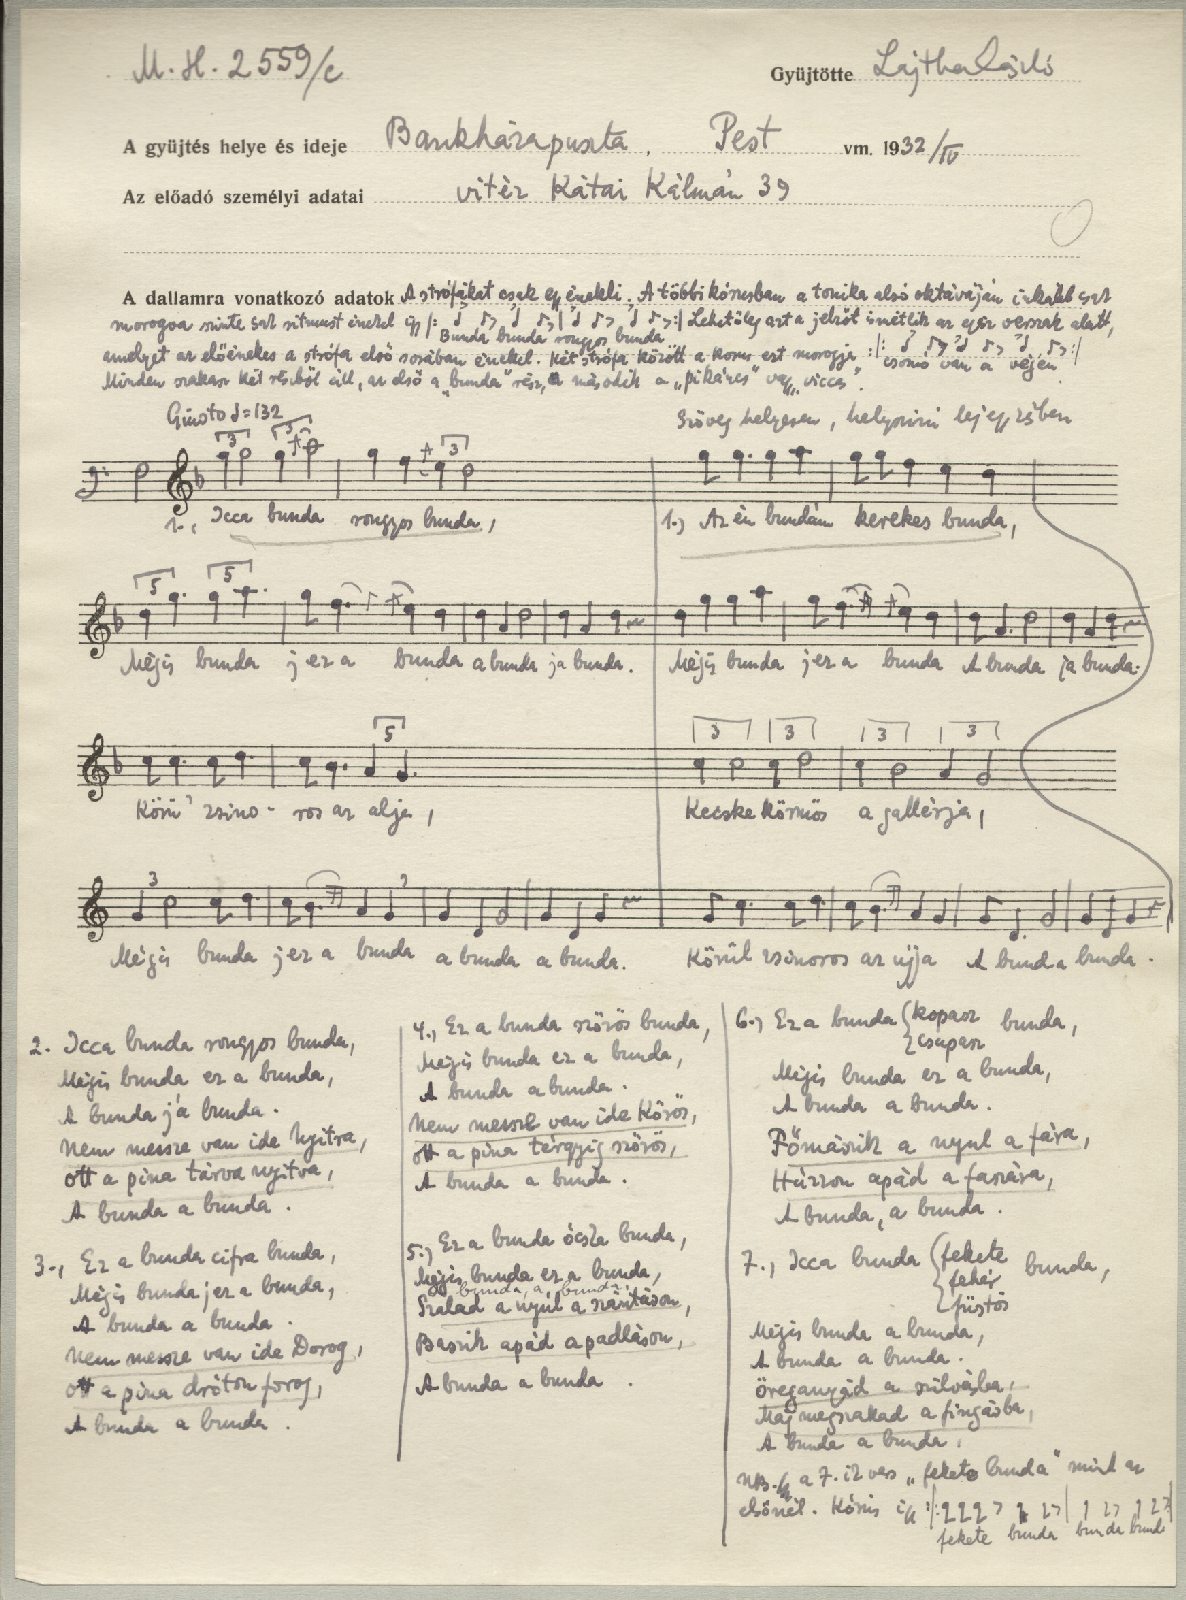 M.H. 2559/c
Gyüjtötte Lajtha László
A gyüjtés helye és ideje Bankházapuszta. Pest vm. 1932/IV
Az előadó személyi adatai vitéz Kátai Kálmán 39
A dallamra vonatkozó adatok A strófákat csak egy énekli. A többi kórusban a tonika alsó oktáváján inkább csak
morogva szinte csak ritmust énekel így
Lehetőleg azt a jelzőt ismétlik az egész versszak alatt,
Bunda bunda rongyos bunda
amelyet az előénekes a strófa első sorában énekel. Két strófa között a kórus ezt morogja:
csomó van a végén
Minden szakasz két részből áll, az első a "bunda" rész, a második a "pikáns" vagy "vicces".
Giusto = 132
Szöveg helyesen, helyszíni lejegyzésben
3 3 3
1., Icca bunda rongyos bunda,
1.) Az én bundám kerekes bunda,
5 5
Mégis bunda j ez a bunda a bunda ja bunda.
Mégis bunda j ez a bunda A bunda ja bunda.
5 3 3 3 3
Körü' zsino- ros az alja,
Kecske körmös a gallérja,
3
Mégis bunda j ez a bunda a bunda a bunda.
Körül zsinoros az ujja A bunda bunda.
2. Icca bunda rongyos bunda,
Mégis bunda ez a bunda,
A bunda já bunda.
Nem messze van ide Nyitra,
ott a pina tárva nyitva,
A bunda a bunda.
3., Ez a bunda cifra bunda,
Mégis bunda j ez a bunda,
A bunda a bunda.
Nem messze van ide Dorog,
ott a pina dróton forog,
A bunda a bunda.
4., Ez a bunda szőrös bunda,
Mégis bunda ez a bunda,
A bunda a bunda.
Nem messze van ide Körös,
ott a pina térgyig szőrös,
A bunda a bunda.
5., Ez a bunda ócska bunda,
Mégis bunda ez a bunda,
bunda, a bunda.
Szalad a nyúl a szántáson,
Baszik apád a padláson,
A bunda a bunda.
6., Ez a bunda kopasz bunda,
csupasz
Mégis bunda ez a bunda,
A bunda a bunda.
Főmászik a nyul a fára,
Húzzon apád a faszára,
A bunda, a bunda.
7., Icca bunda fekete bunda,
fehér
füstös
Mégis bunda a bunda,
A bunda a bunda.
öreganyád a szilvásba,
Maj megszakad a fingásba,
A bunda a bunda.
NB. Így a 7. ik vers "fekete bunda" mint az
elsőnél. Kórus így
fekete bunda bunda bunda